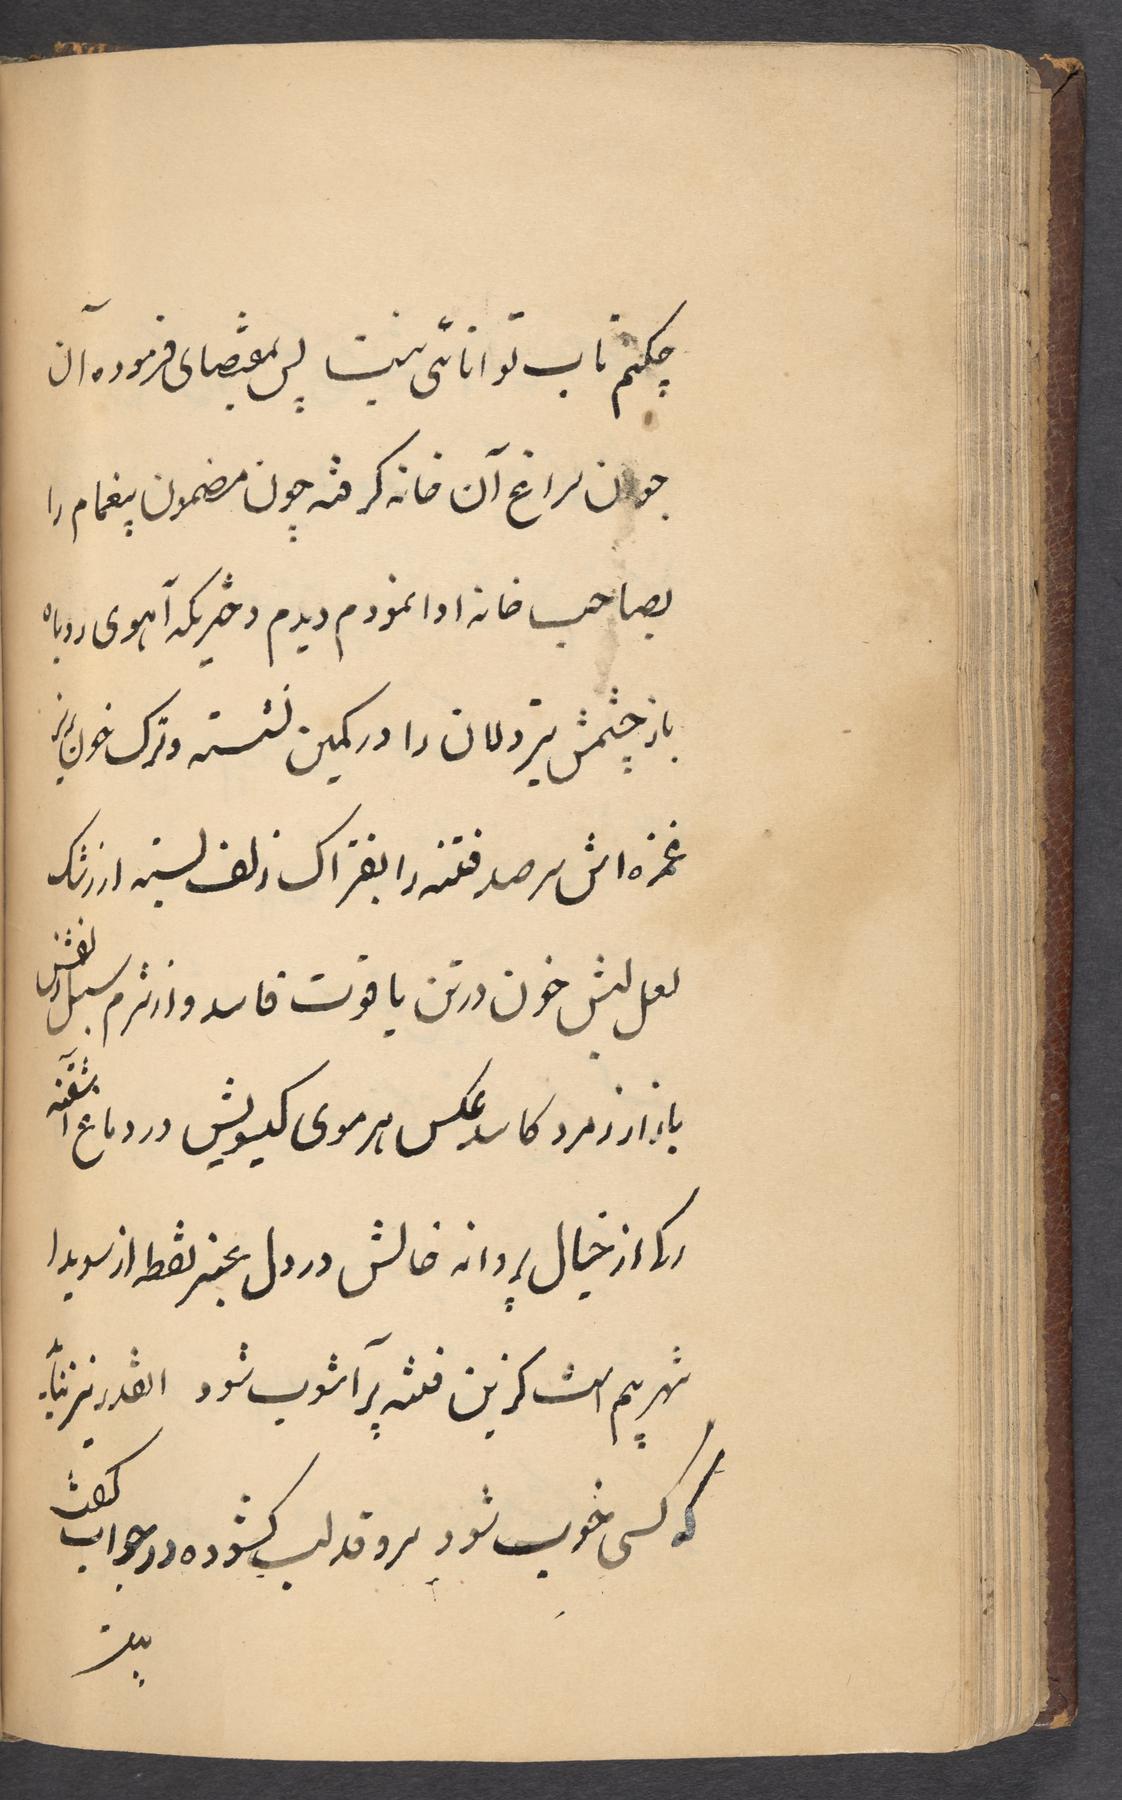 چکنم تاب توانائی نیست پس بمقتضای فرموده آن
جوان سراغ آن خانه گرفته چون مضمون پیغام را
بصاحب خانه ادا نمودم دیدم دختریکه آهوی روباه
باز چشمش تیردلان را در کمین نشسته و ترک خون ریز
غمزه اش سر صد فتنه را بفتراک زلف بسته از رشک
لعل لبش خون در تن یاقوت فاسد و از شرم سنبل زلفش
بازار زمرد کاسد عکس هر موی گیسویش در دماغ آشفته
رگ از خیال پروانه خالش در دل عنبر نقطه از سویدا
شهر پیم است کزین فتنه پر آشوب شود انقدر نیز نباید
که کسی خوب شود سرو قد لب گشوده در جواب گفت
بیت